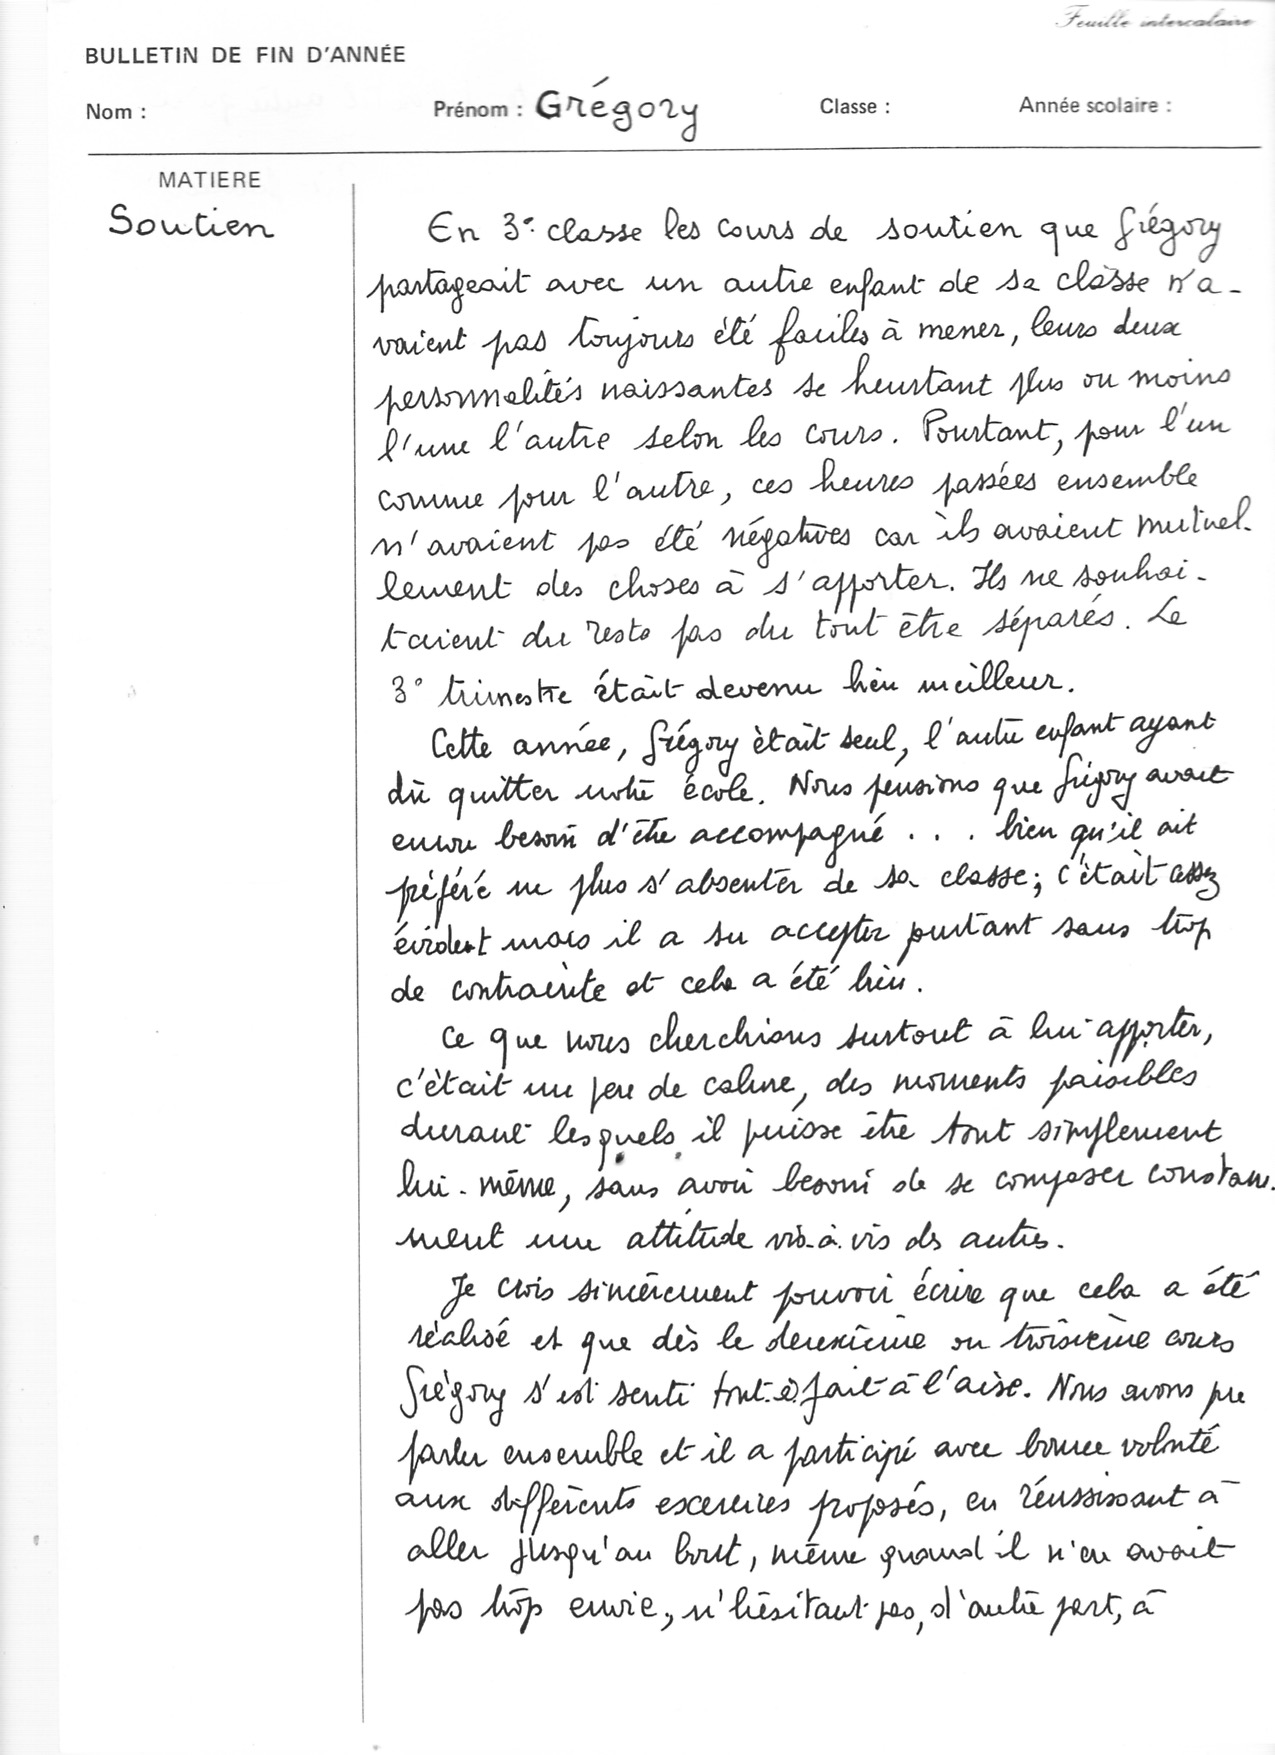 Feuille intercalaire
BULLETIN DE FIN D'ANNÉE
Nom : Prénom : Grégory Classe : Année scolaire :
MATIERE
Soutien
En 3e classe les cours de soutien que Grégory
partageait avec un autre enfant de sa classe n'a-
vaient pas toujours été faciles à mener, leurs deux
personnalités naissantes se heurtant plus ou moins
l'une l'autre selon les cours. Pourtant, pour l'un
comme pour l'autre, ces heures passées ensemble
n'avaient pas été négatives car ils avaient mutuel-
lement des choses à s'apporter. Ils ne souhai-
taient du reste pas du tout être séparés. Le
3e trimestre était devenu bien meilleur.
Cette année, Grégory était seul, l'autre enfant ayant
dû quitter notre école. Nous pensions que Grégory avait
encore besoin d'être accompagné . . . bien qu'il ait
préféré ne plus s'absenter de sa classe; c'était assez
évident mais il a su accepter pourtant sans trop
de contrainte et cela a été bien.
Ce que nous cherchions surtout à lui apporter,
c'était un peu de calme, des moments paisibles
durant lesquels il puisse être tout simplement
lui-même, sans avoir besoin de se composer constam-
ment une attitude vis-à-vis des autres.
Je crois sincèrement pouvoir écrire que cela a été
réalisé et que dès le deuxième ou troisième cours
Grégory s'est senti tout-à-fait à l'aise. Nous avons pu
parler ensemble et il a participé avec bonne volonté
aux différents exercices proposés, en réussissant à
aller jusqu'au bout, même quand il n'en avait
pas trop envie, n'hésitant pas, d'autre part, à